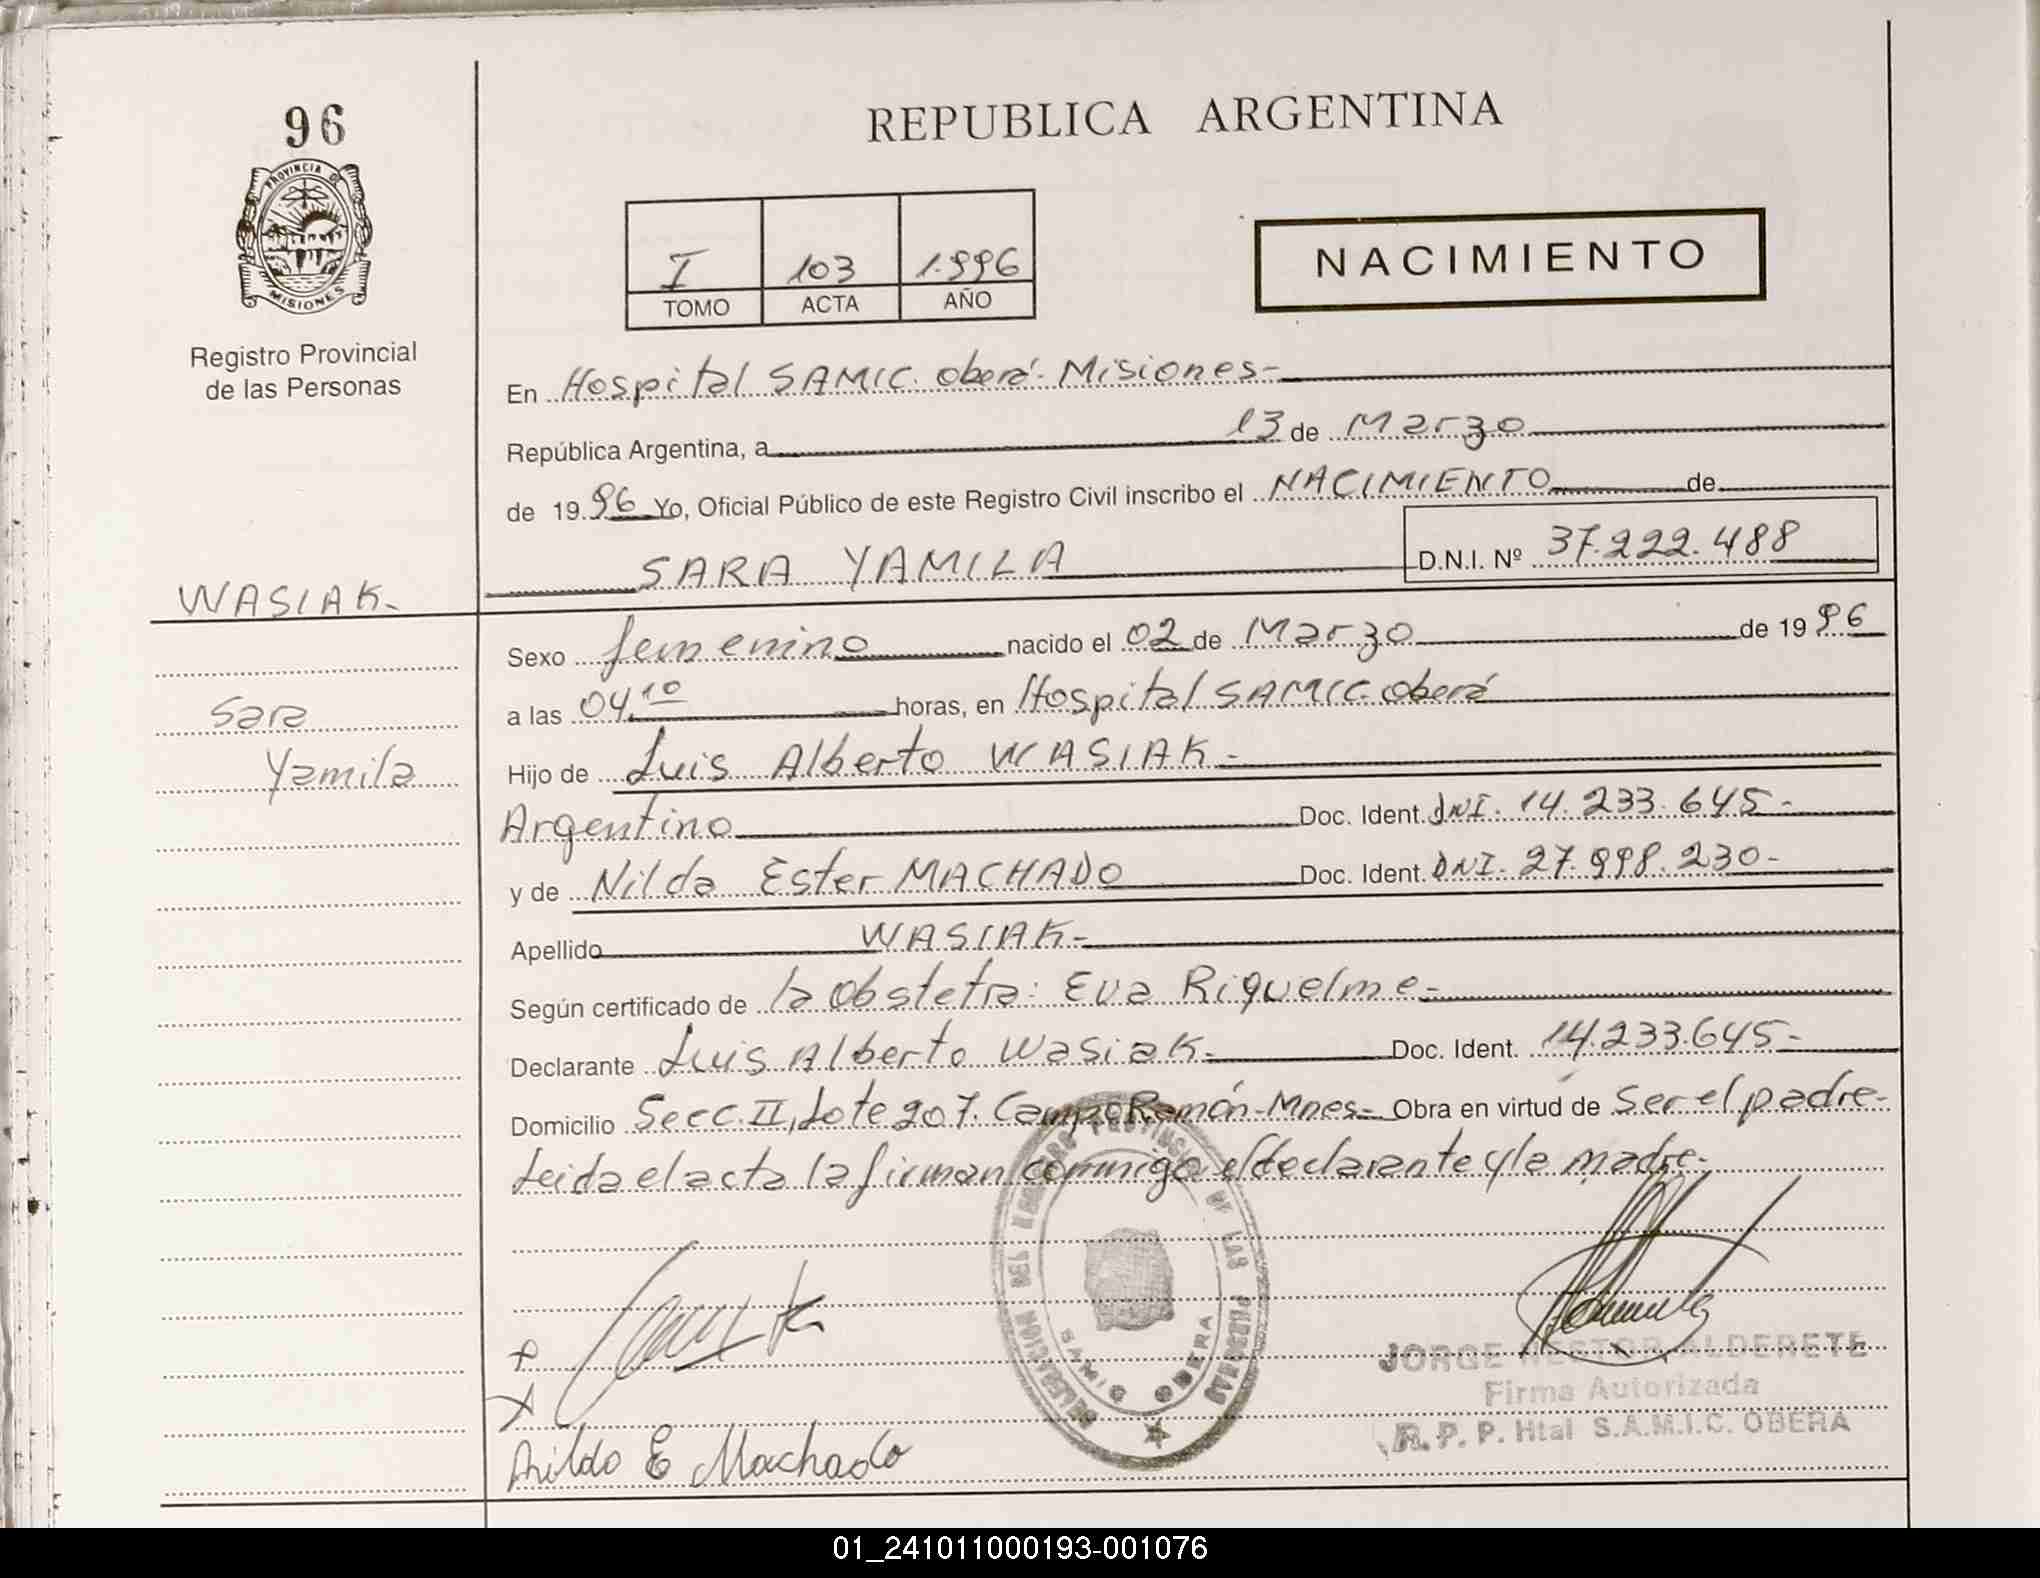 96
REPUBLICA ARGENTINA
PROVINCIA D
MISIONES
I 103 1.996
TOMO ACTA AÑO
NACIMIENTO
Registro Provincial
de las Personas
En Hospital SAMIC. Oberá- Misiones-
República Argentina, a 13 de Marzo
de 1996 Yo, Oficial Público de este Registro Civil inscribo el NACIMIENTO de
SARA YAMILA D.N.I. Nº 37.222.488
WASIAK-
Sexo femenino nacido el 02 de Marzo de 1996
Sara
a las 04,10 horas, en Hospital SAMIC. Oberá
Yamila
Hijo de Luis Alberto WASIAK-
Argentino Doc. Ident. DNI. 14.233.645-
y de Nilda Ester MACHADO Doc. Ident. DNI. 27.998.230-
Apellido WASIAK-
Según certificado de la obstetra: Eva Riquelme-
Declarante Luis Alberto Wasiak- Doc. Ident. 14.233.645-
Domicilio Secc. II, Lote 207. Campo Ramón-Mnes- Obra en virtud de Ser el padre-
Leida el acta la firman conmigo el declarante y la madre-
DELEGACION DEL REGISTRO PROVINCIAL DE LAS PERSONAS
SAMIC OBERA
JORGE NESTOR ALDERETE
Firma Autorizada
R. P. P. Htal S.A.M.I.C. OBERA
Nilda E Machado
01_241011000193-001076